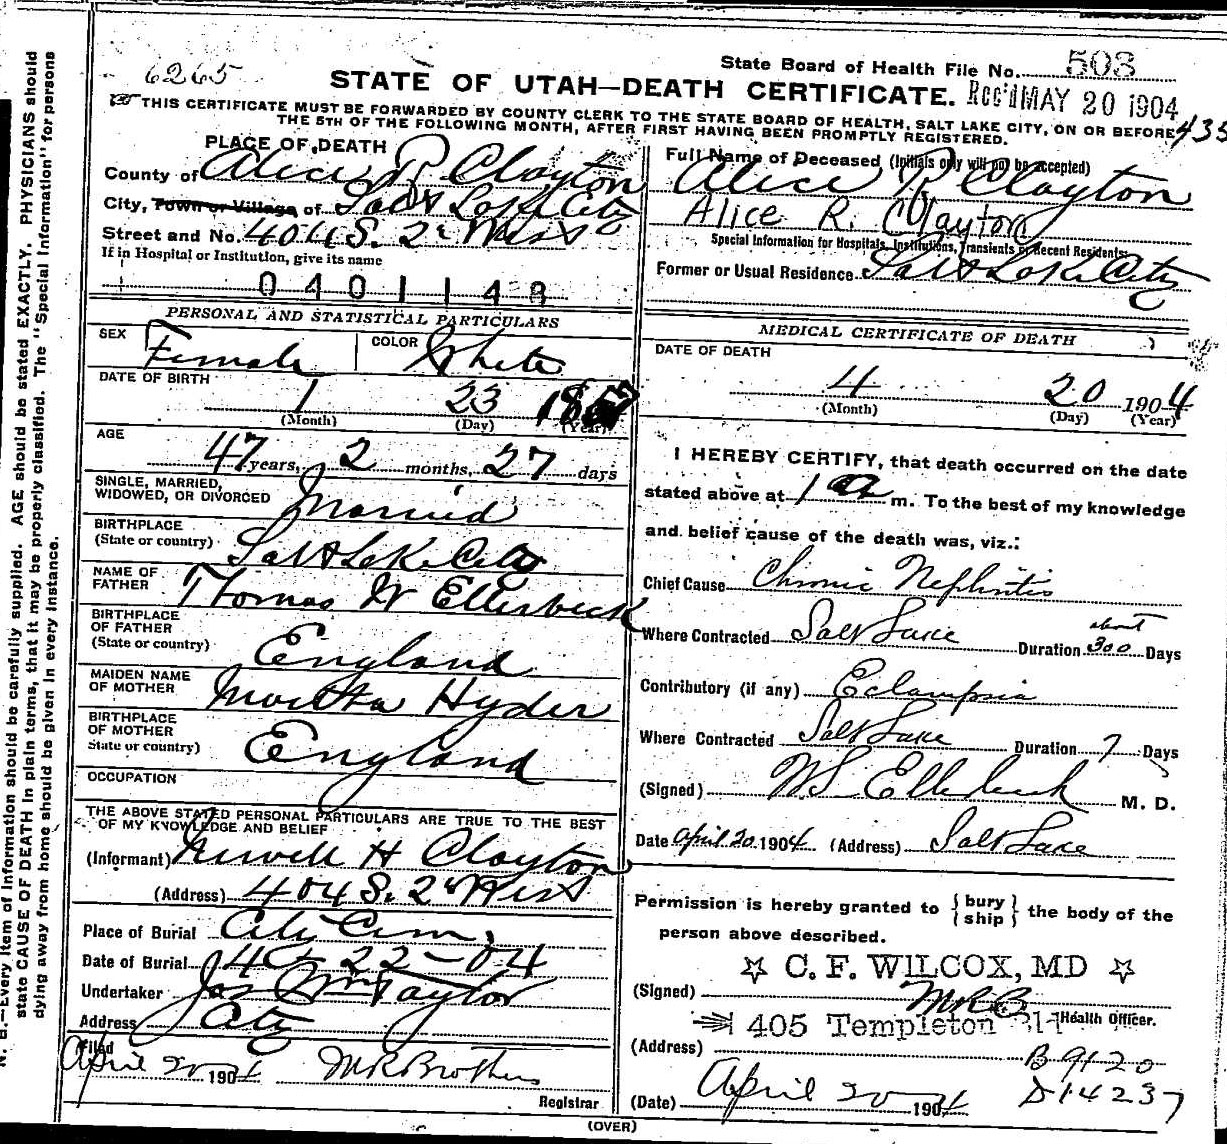 N. B.—Every item of Information should be carefully supplied. AGE should be stated EXACTLY. PHYSICIANS should
state CAUSE OF DEATH in plain terms, that it may be properly classified. The "Special Information" for persons
dying away from home should be given in every instance.
6265
State Board of Health File No. 503
STATE OF UTAH—DEATH CERTIFICATE. Rec'd MAY 20 1904
THIS CERTIFICATE MUST BE FORWARDED BY COUNTY CLERK TO THE STATE BOARD OF HEALTH, SALT LAKE CITY, ON OR BEFORE
THE 5TH OF THE FOLLOWING MONTH, AFTER FIRST HAVING BEEN PROMPTLY REGISTERED.
435
PLACE OF DEATH
County of Alice R Clayton
City, Town or Village of Salt Lake City
Street and No. 404 S. 2d West
If in Hospital or Institution, give its name
0401148
Full Name of Deceased (Initials only will not be accepted)
Alice R Clayton
Alice R. Clayton
Special Information for Hospitals, Institutions, Transients or Recent Residents:
Former or Usual Residence Salt Lake City
PERSONAL AND STATISTICAL PARTICULARS
SEX Female COLOR White
DATE OF BIRTH
1 23
(Month) (Day) (Year)
AGE
47 years, 2 months, 27 days
SINGLE, MARRIED,
WIDOWED, OR DIVORCED Married
BIRTHPLACE
(State or country) Salt Lake City
NAME OF
FATHER Thomas W Ellerbeck
BIRTHPLACE
OF FATHER
(State or country) England
MAIDEN NAME
OF MOTHER Martha Hyder
BIRTHPLACE
OF MOTHER
State or country) England
OCCUPATION
THE ABOVE STATED PERSONAL PARTICULARS ARE TRUE TO THE BEST
OF MY KNOWLEDGE AND BELIEF
(Informant) Newell H Clayton
(Address) 404 S. 2d West
Place of Burial City Cem.
Date of Burial 4-22-04
Undertaker Jos Wm Taylor
Address City
Filed
April 20 1904 M R Brothers
Registrar
MEDICAL CERTIFICATE OF DEATH
DATE OF DEATH
4 20 1904
(Month) (Day) (Year)
I HEREBY CERTIFY, that death occurred on the date
stated above at 1 a m. To the best of my knowledge
and belief cause of the death was, viz.:
Chief Cause Chronic Nephritis
Where Contracted Salt Lake Duration about 300 Days
Contributory (if any) Eclampsia
Where Contracted Salt Lake Duration 7 Days
(Signed) W S Ellerbeck M. D.
Date April 20 1904 (Address) Salt Lake
Permission is hereby granted to { bury ship } the body of the
person above described.
☆ C. F. WILCOX, MD ☆
(Signed) M R B
Health Officer.
405 Templeton
(Address) B 9120
D 14237
(Date) April 20 1904
(OVER)